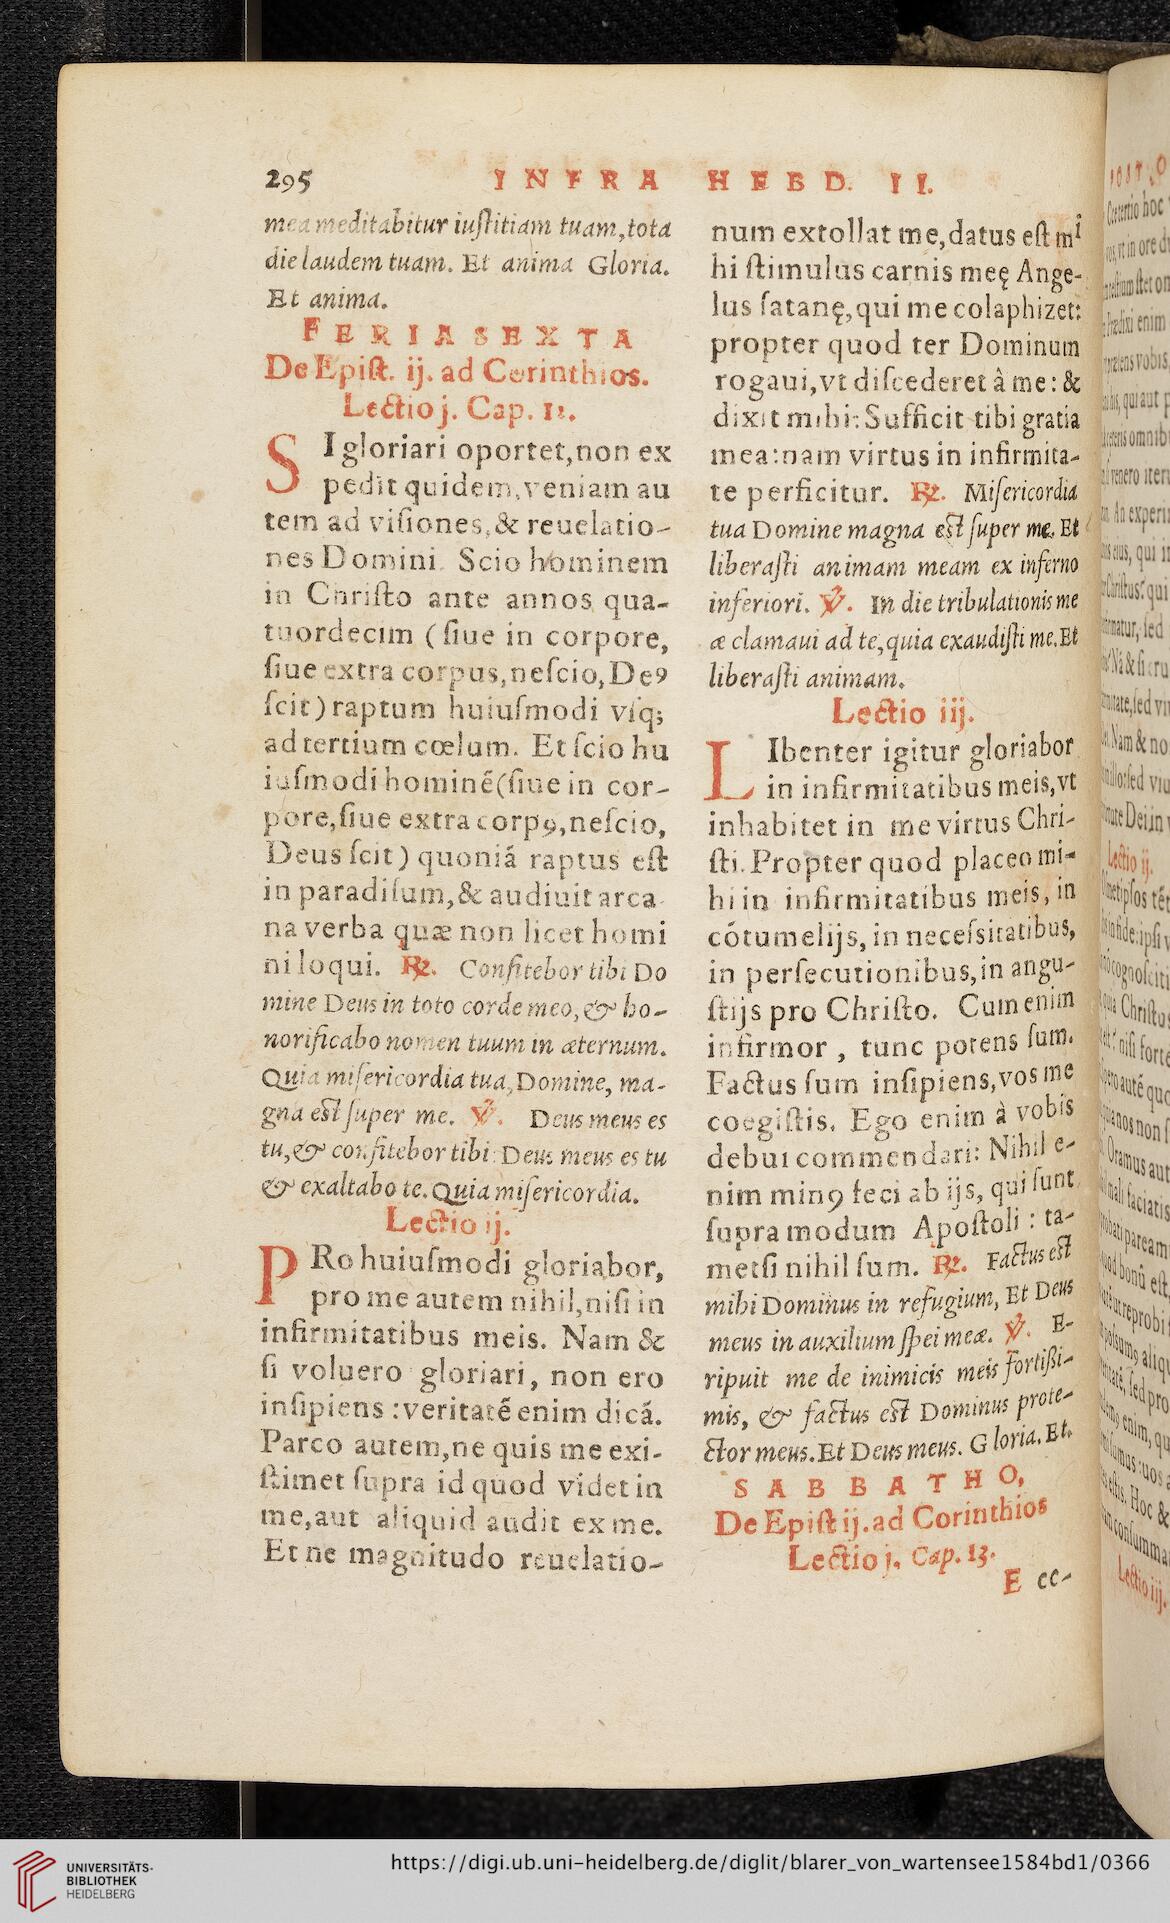 295 INFRA HEBD. II.
mea meditabitur iuſtitiam tuam, tota
die laudem tuam. Et anima Gloria.
Et anima.
FERIA SEXTA
De Epiſt. ij. ad Corinthios.
Lectio j. Cap. 12.
SI gloriari oportet, non ex
pedit quidem, veniam au
tem ad viſiones, & reuelatio-
nes Domini. Scio hominem
in Chriſto ante annos qua-
tuordecim (ſiue in corpore,
ſiue extra corpus, neſcio, Deꝰ
ſcit) raptum huiuſmodi vſq;
ad tertium cœlum. Et ſcio hu
iuſmodi hominé (ſiue in cor-
pore, ſiue extra corpꝰ, neſcio,
Deus ſcit) quoniá raptus eſt
in paradiſum, & audiuit arca
na verba quæ non licet homi
ni loqui. ℟. Confitebor tibi Do
mine Deus in toto corde meo, & ho-
norificabo nomen tuum in æternum.
Quia miſericordia tua, Domine, ma-
gna eſt ſuper me. ℣. Deus meus es
tu, & confitebor tibi: Deus meus es tu
& exaltabo te. Quia miſericordia.
Lectio ij.
PRo huiuſmodi gloriabor,
pro me autem nihil, niſi in
infirmitatibus meis. Nam &
ſi voluero gloriari, non ero
inſipiens: veritaté enim dicá.
Parco autem, ne quis me exi-
ſtimet ſupra id quod videt in
me, aut aliquid audit ex me.
Et ne magnitudo reuelatio-
num extollat me, datus eſt mi
hi ſtimulus carnis meę Ange-
lus ſatanę, qui me colaphizet:
propter quod ter Dominum
rogaui, vt diſcederet à me: &
dixit mihi: Sufficit tibi gratia
mea: nam virtus in infirmita-
te perficitur. ℟. Miſericordia
tua Domine magna eſt ſuper me. Et
liberaſti animam meam ex inferno
inferiori. ℣. In die tribulationis me
æ clamaui ad te, quia exaudiſti me. Et
liberaſti animam.
Lectio iij.
LIbenter igitur gloriabor
in infirmitatibus meis, vt
inhabitet in me virtus Chri-
ſti. Propter quod placeo mi-
hi in infirmitatibus meis, in
cótumelijs, in neceſsitatibus,
in perſecutionibus, in angu-
ſtijs pro Chriſto. Cum enim
infirmor, tunc potens ſum.
Factus ſum inſipiens, vos me
coegiſtis. Ego enim à vobis
debui commendari: Nihil e-
nim minꝰ feci ab ijs, qui ſunt
ſupra modum Apoſtoli: ta-
metſi nihil ſum. ℟. Factus eſt
mihi Dominus in refugium, Et Deus
meus in auxilium ſpei meæ. ℣. E-
ripuit me de inimicis meis fortißi-
mis, & factus eſt Dominus prote-
ctor meus. Et Deus meus. Gloria. Et.
SABBATHO,
De Epiſt ij. ad Corinthios
Lectio j. Cap. 13.
E cc-
Lectio ij.
Lectio iij.
UNIVERSITÄTS-
BIBLIOTHEK
HEIDELBERG
https://digi.ub.uni-heidelberg.de/diglit/blarer_von_wartensee1584bd1/0366